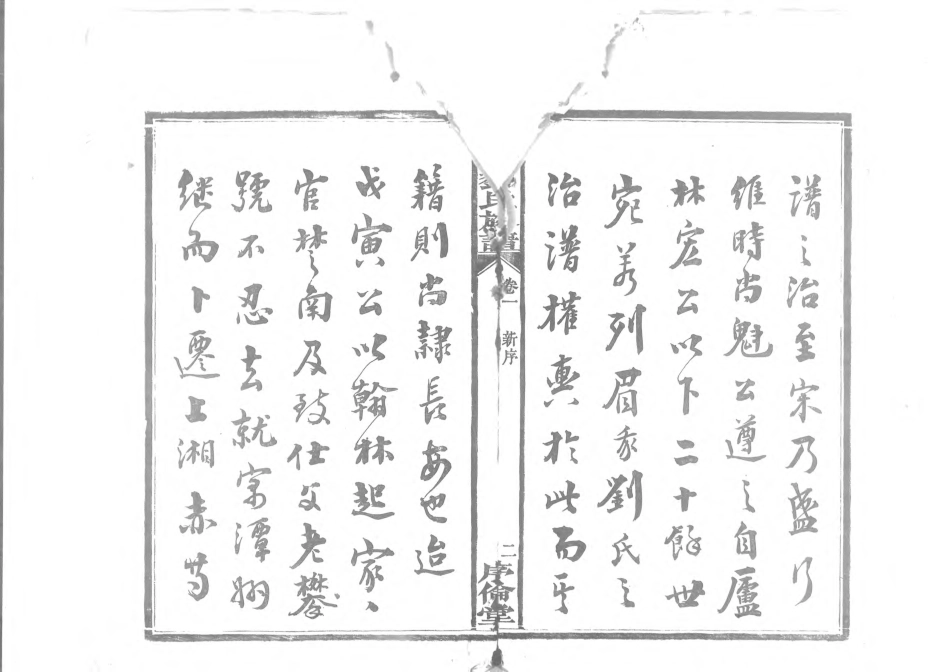 譜之治至宋乃盛行
維時尚魁公遵之自廬
林宏公以下二十餘世
宛若列眉我劉氏之
治譜權輿於此而其
氏族譜
卷一 新序 二
序倫堂
籍則尚隸長安也迨
戊寅公以翰林起家
官楚南及致仕父老攀
號不忍去就家潭州
继而卜遷上湘赤